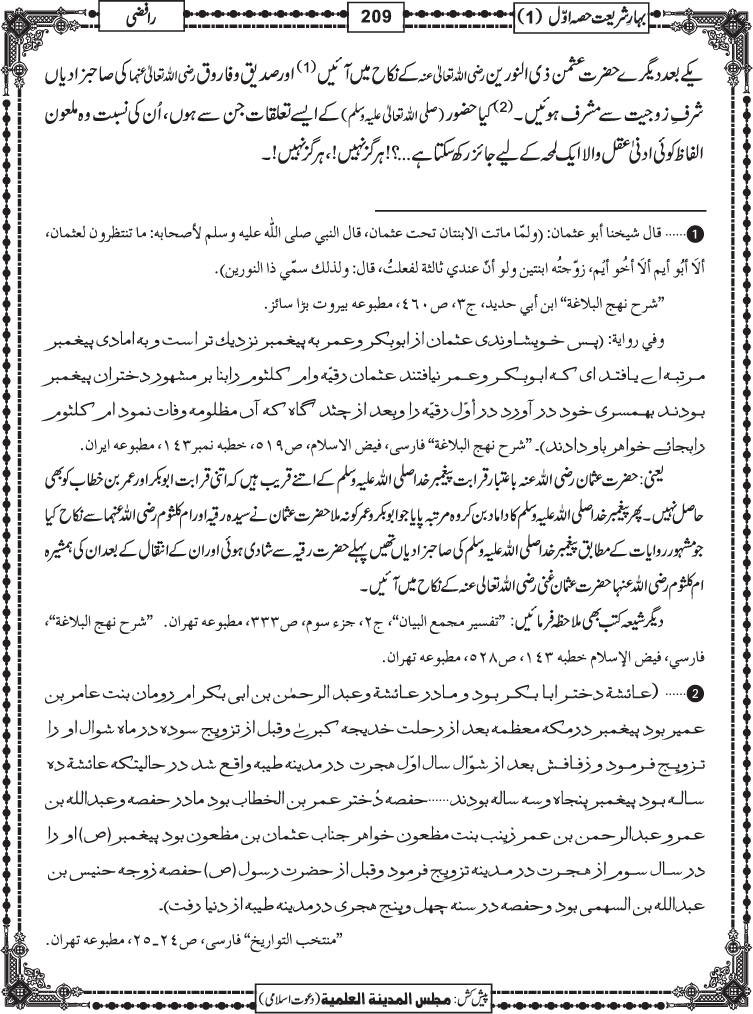 بہارِ شریعت حصہ اوّل (1)
209
رافضی
یکے بعد دیگرے حضرت عثمٰن ذی النورین رضی اللہ تعالیٰ عنہ کے نکاح میں آئیں (1) اور صدیق و فاروق رضی اللہ تعالیٰ عنہما کی صاحبزادیاں
شرفِ زوجیت سے مشرف ہوئیں۔ (2) کیا حضور (صلی اللہ تعالیٰ علیہ وسلم) کے ایسے تعلقات جن سے ہوں، اُن کی نسبت وہ ملعون
الفاظ کوئی ادنیٰ عقل والا ایک لمحہ کے لیے جائز رکھ سکتا ہے...؟! ہرگز نہیں!، ہرگز نہیں!۔
1...... قال شيخنا أبو عثمان: (ولمّا ماتت الابنتان تحت عثمان، قال النبي صلى الله عليه وسلم لأصحابه: ما تنتظرون لعثمان،
ألَا أبُو أيم ألَا أخُو أيْم، زوّجتُه ابنتين ولو أنّ عندي ثالثة لفعلتُ، قال: ولذلك سمّي ذا النورين).
”شرح نهج البلاغة“ ابن أبي حديد، ج۳، ص ٤٦٠، مطبوعه بيروت بڑا سائز.
وفي رواية: (پس خویشاوندی عثمان از ابوبکر و عمر به پیغمبر نزدیك تر است و به امادی پیغمبر
مرتبه اے یافتد ای که ابوبکر و عمر نیافتند عثمان رقیّه وام کلثوم رابنا بر مشهود دختران پیغمبر
بودند بهمسری خود در آورد در أوّل رقیّه را وبعد از چند گاه که آں مظلومه وفات نمود ام کلثوم
رابجائے خواهر باو دادند)۔ ”شرح نهج البلاغة“ فارسی، فیض الاسلام، ص٥١٩، خطبه نمبر١٤٣، مطبوعه ایران.
یعنی: حضرت عثمان رضی اللہ عنہ باعتبار قرابت پیغمبر خدا صلی اللہ علیہ وسلم کے اتنے قریب ہیں کہ اتنی قرابت ابوبکر اور عمر بن خطاب کو بھی
حاصل نہیں۔ پھر پیغمبر خدا صلی اللہ علیہ وسلم کا داماد بن کر وہ مرتبہ پایا جو ابوبکر و عمر کو نہ ملا حضرت عثمان نے سیدہ رقیہ اور ام کلثوم رضی اللہ عنہما سے نکاح کیا
جو مشہور روایات کے مطابق پیغمبر خدا صلی اللہ علیہ وسلم کی صاحبزادیاں تھیں پہلے حضرت رقیہ سے شادی ہوئی اور ان کے انتقال کے بعد ان کی ہمشیرہ
ام کلثوم رضی اللہ عنہا حضرت عثمان غنی رضی اللہ تعالی عنہ کے نکاح میں آئیں۔
دیگر شیعہ کتب بھی ملاحظہ فرمائیں: ”تفسیر مجمع البیان“، ج۲، جزء سوم، ص۳۳۳، مطبوعه تهران. ”شرح نهج البلاغة“،
فارسي، فيض الإسلام خطبه ١٤٣، ص٥٢٨، مطبوعه تهران.
2...... (عائشة دختر ابا بکر بود و مادر عائشة وعبد الرحمٰن بن ابی بکر ام رومان بنت عامر بن
عمیر بود پیغمبر درمکه معظمه بعد از رحلت خدیجه کبریٰ وقبل از تزویج سوده در ماه شوال او را
تزویج فرمود و زفافش بعد از شوّال سال اوّل هجرت درمدینه طیبه واقع شد در حالیتکه عائشة ده
ساله بود پیغمبر پنجاه وسه ساله بودند......حفصه دُختر عمر بن الخطاب بود مادر حفصه وعبدالله بن
عمر و عبدالرحمن بن عمر زینب بنت مظعون خواهر جناب عثمان بن مظعون بود پیغمبر (ص) او را
در سال سوم از هجرت در مدینه تزویج فرمود وقبل از حضرت رسول (ص) حفصه زوجه حنیس بن
عبدالله بن السهمی بود وحفصه در سنه چهل وپنج هجری درمدینه طیبه از دنیا رفت)۔
”منتخب التواریخ“ فارسی، ص٢٤۔٢٥، مطبوعه تهران.
پیش کش: مجلس المدينة العلمية (دعوت اسلامی)